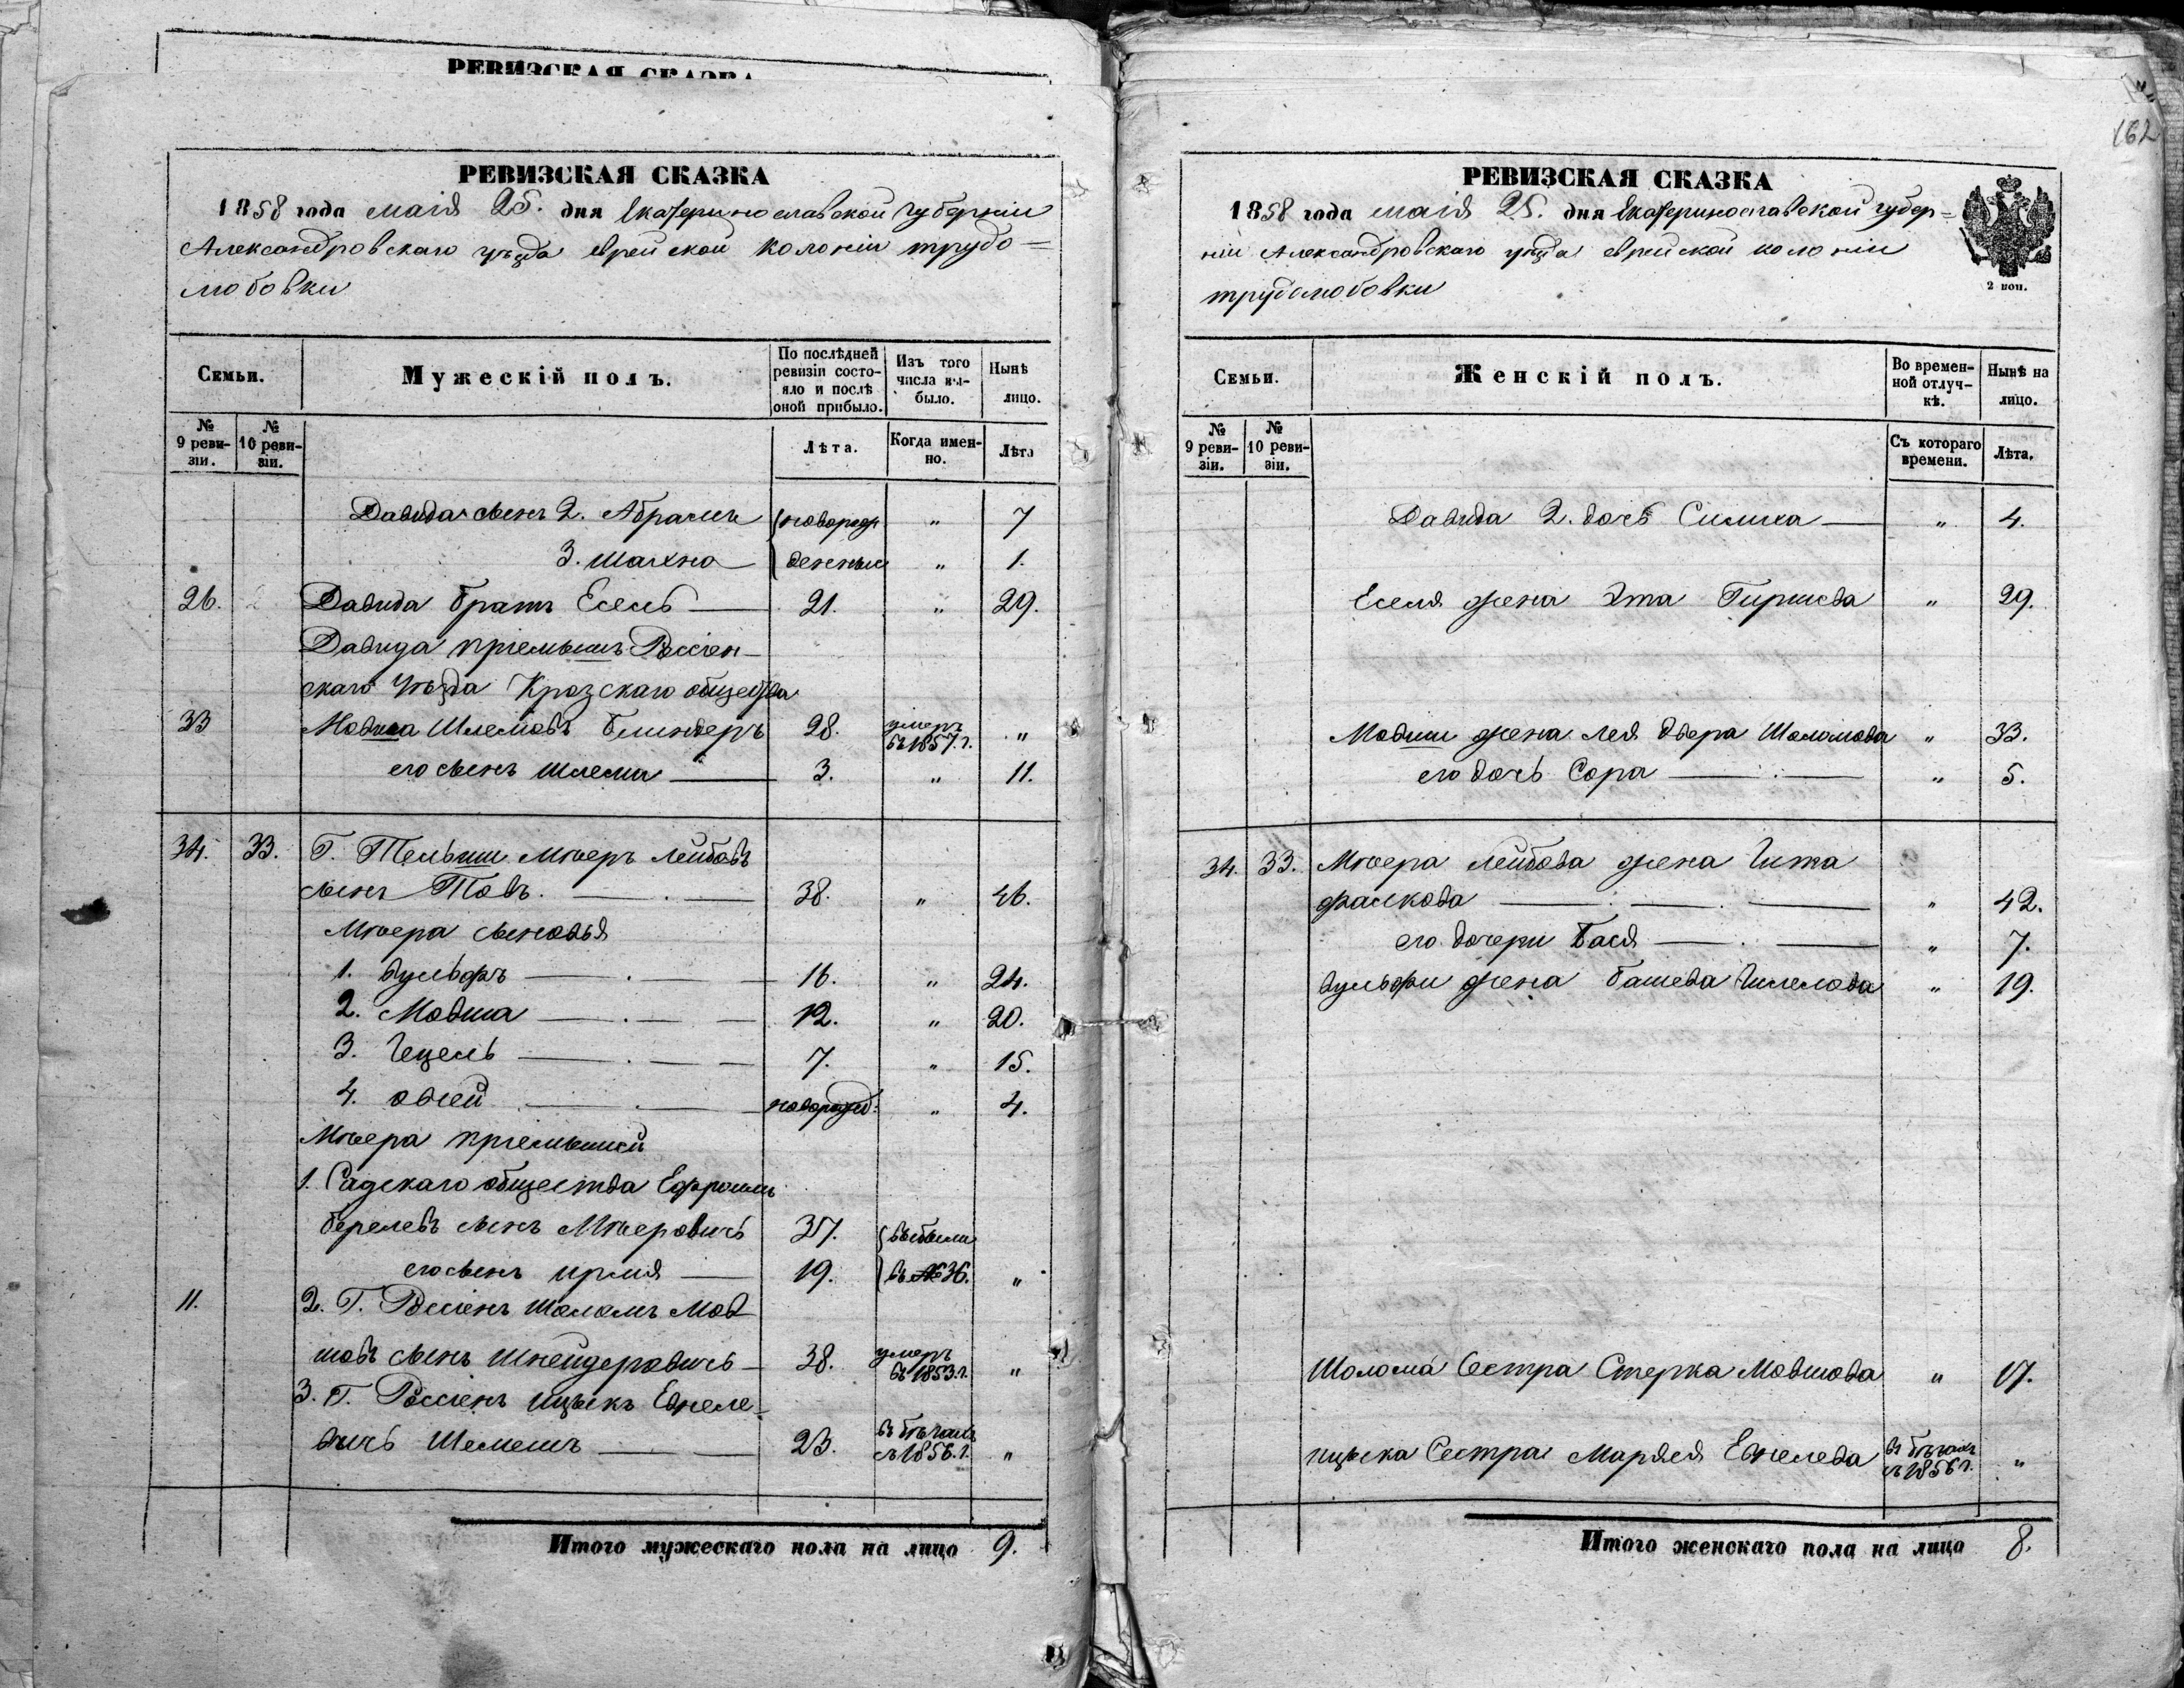 РЕВИЗСКАЯ СКАЗКА
РЕВИЗСКАЯ СКАЗКА
1858 года маія 25. дня Екатеринославской губерніи
Александровскаго уѣзда еврейской колоніи трудо=
любовки
Семьи. Мужескій полъ. По послѣдней ревизіи состояло и послѣ оной прибыло. Изъ того числа выбыло. Нынѣ лицо.
№ 9 ревизіи. № 10 ревизіи. Лѣта. Когда именно. Лѣта
Давида сынъ 2. Абрамъ новорож „ 7
3. Шахно денные „ 1.
26. Давида братъ Есель 21. „ 29.
Давида пріемышъ Россіен-
скаго уѣзда Крозскаго общества
33 Мовша Шлемовъ Блиндеръ 28. умеръ въ 1857. г. „
его сынъ Шлема 3. „ 11.
34. 33. Г. Тельши Мѣеръ Лейбовъ
сынъ Товъ. 38. „ 46.
Мѣера сыновья
1. Вульфъ 16. „ 24.
2. Мовша 12. „ 20.
3. Гецель 7. „ 15.
4. Овсей новорожд: „ 4.
Мѣера пріемыши
1. Садскаго общества Ефроимъ
Берелевъ сынъ Мѣеровичъ 37. выбыли
его сынъ Ирмія 19. въ № 36. „
11. 2. Г. Россіенъ Шоломъ Мов
шовъ сынъ Шнейдеровичъ 38. умеръ въ 1853. г. „
3. Г. Россіенъ Ицыкъ Евнеле-
вичъ Шемешъ 23. въ бѣгахъ съ 1856. г. „
Итого мужескаго пола на лицо 9.
162
РЕВИЗСКАЯ СКАЗКА
1858 года маія 25. дня Екатеринославской губер=
ніи Александровскаго уѣзда еврейской колоніи
трудолюбовки
2 коп.
Семьи. Женскій полъ. Во временной отлучкѣ. Нынѣ на лицо.
№ 9 ревизіи. № 10 ревизіи. Съ котораго времени. Лѣта.
Давида 2. дочь Симиха „ 4.
Еселя жена Эта Гиршева „ 29.
Мовши жена Лея Двера Шоломова „ 33.
его дочь Сора „ 5.
34. 33. Мѣера Лейбова жена Гита
Фалкова „ 42.
его дочери Бася „ 7.
Вульфи жена Башева „ 19.
Шолома Сестра Стерка Мовшова „ 17.
Ицыка Сестра Маряся Евнелева въ бѣгахъ съ 1856 г. „
Итого женскаго пола на лицо 8.